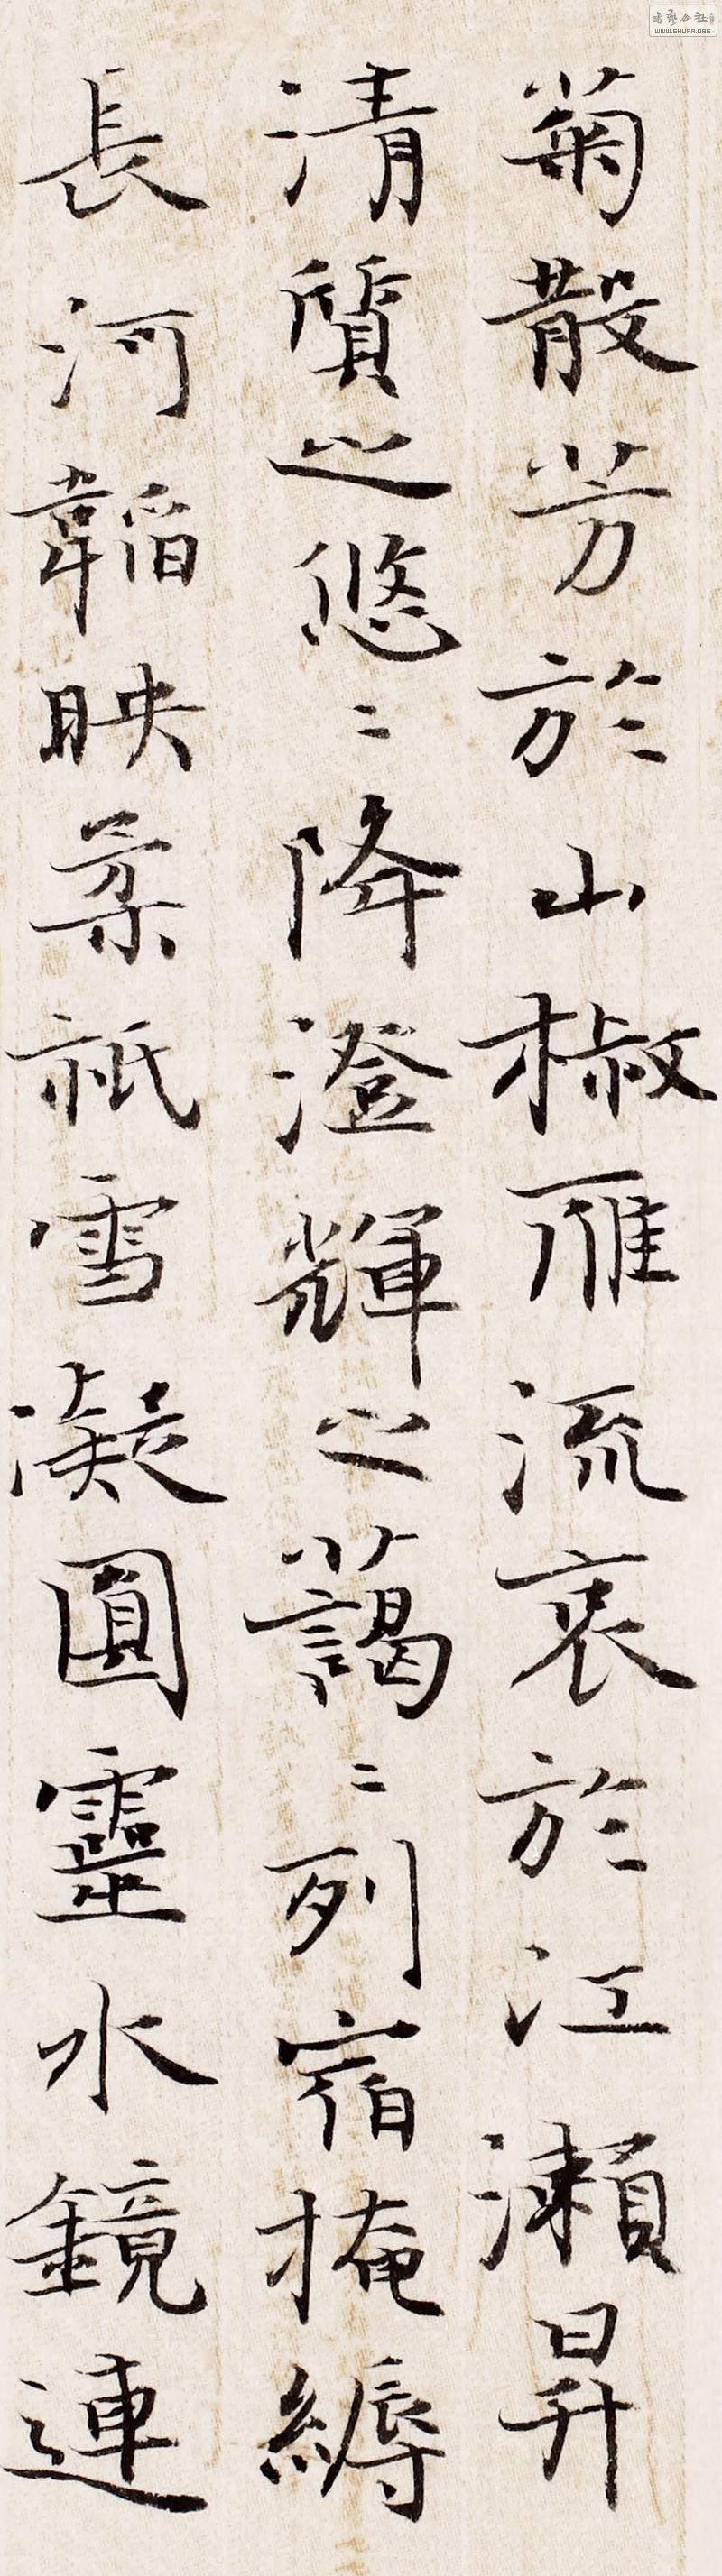 菊散芳於山椒雁流哀於江瀨昇
清質之悠〻降澄輝之藹〻列宿掩縟
長河韜映柔祇雪凝圓靈水鏡連
WWW.SHUFA.ORG